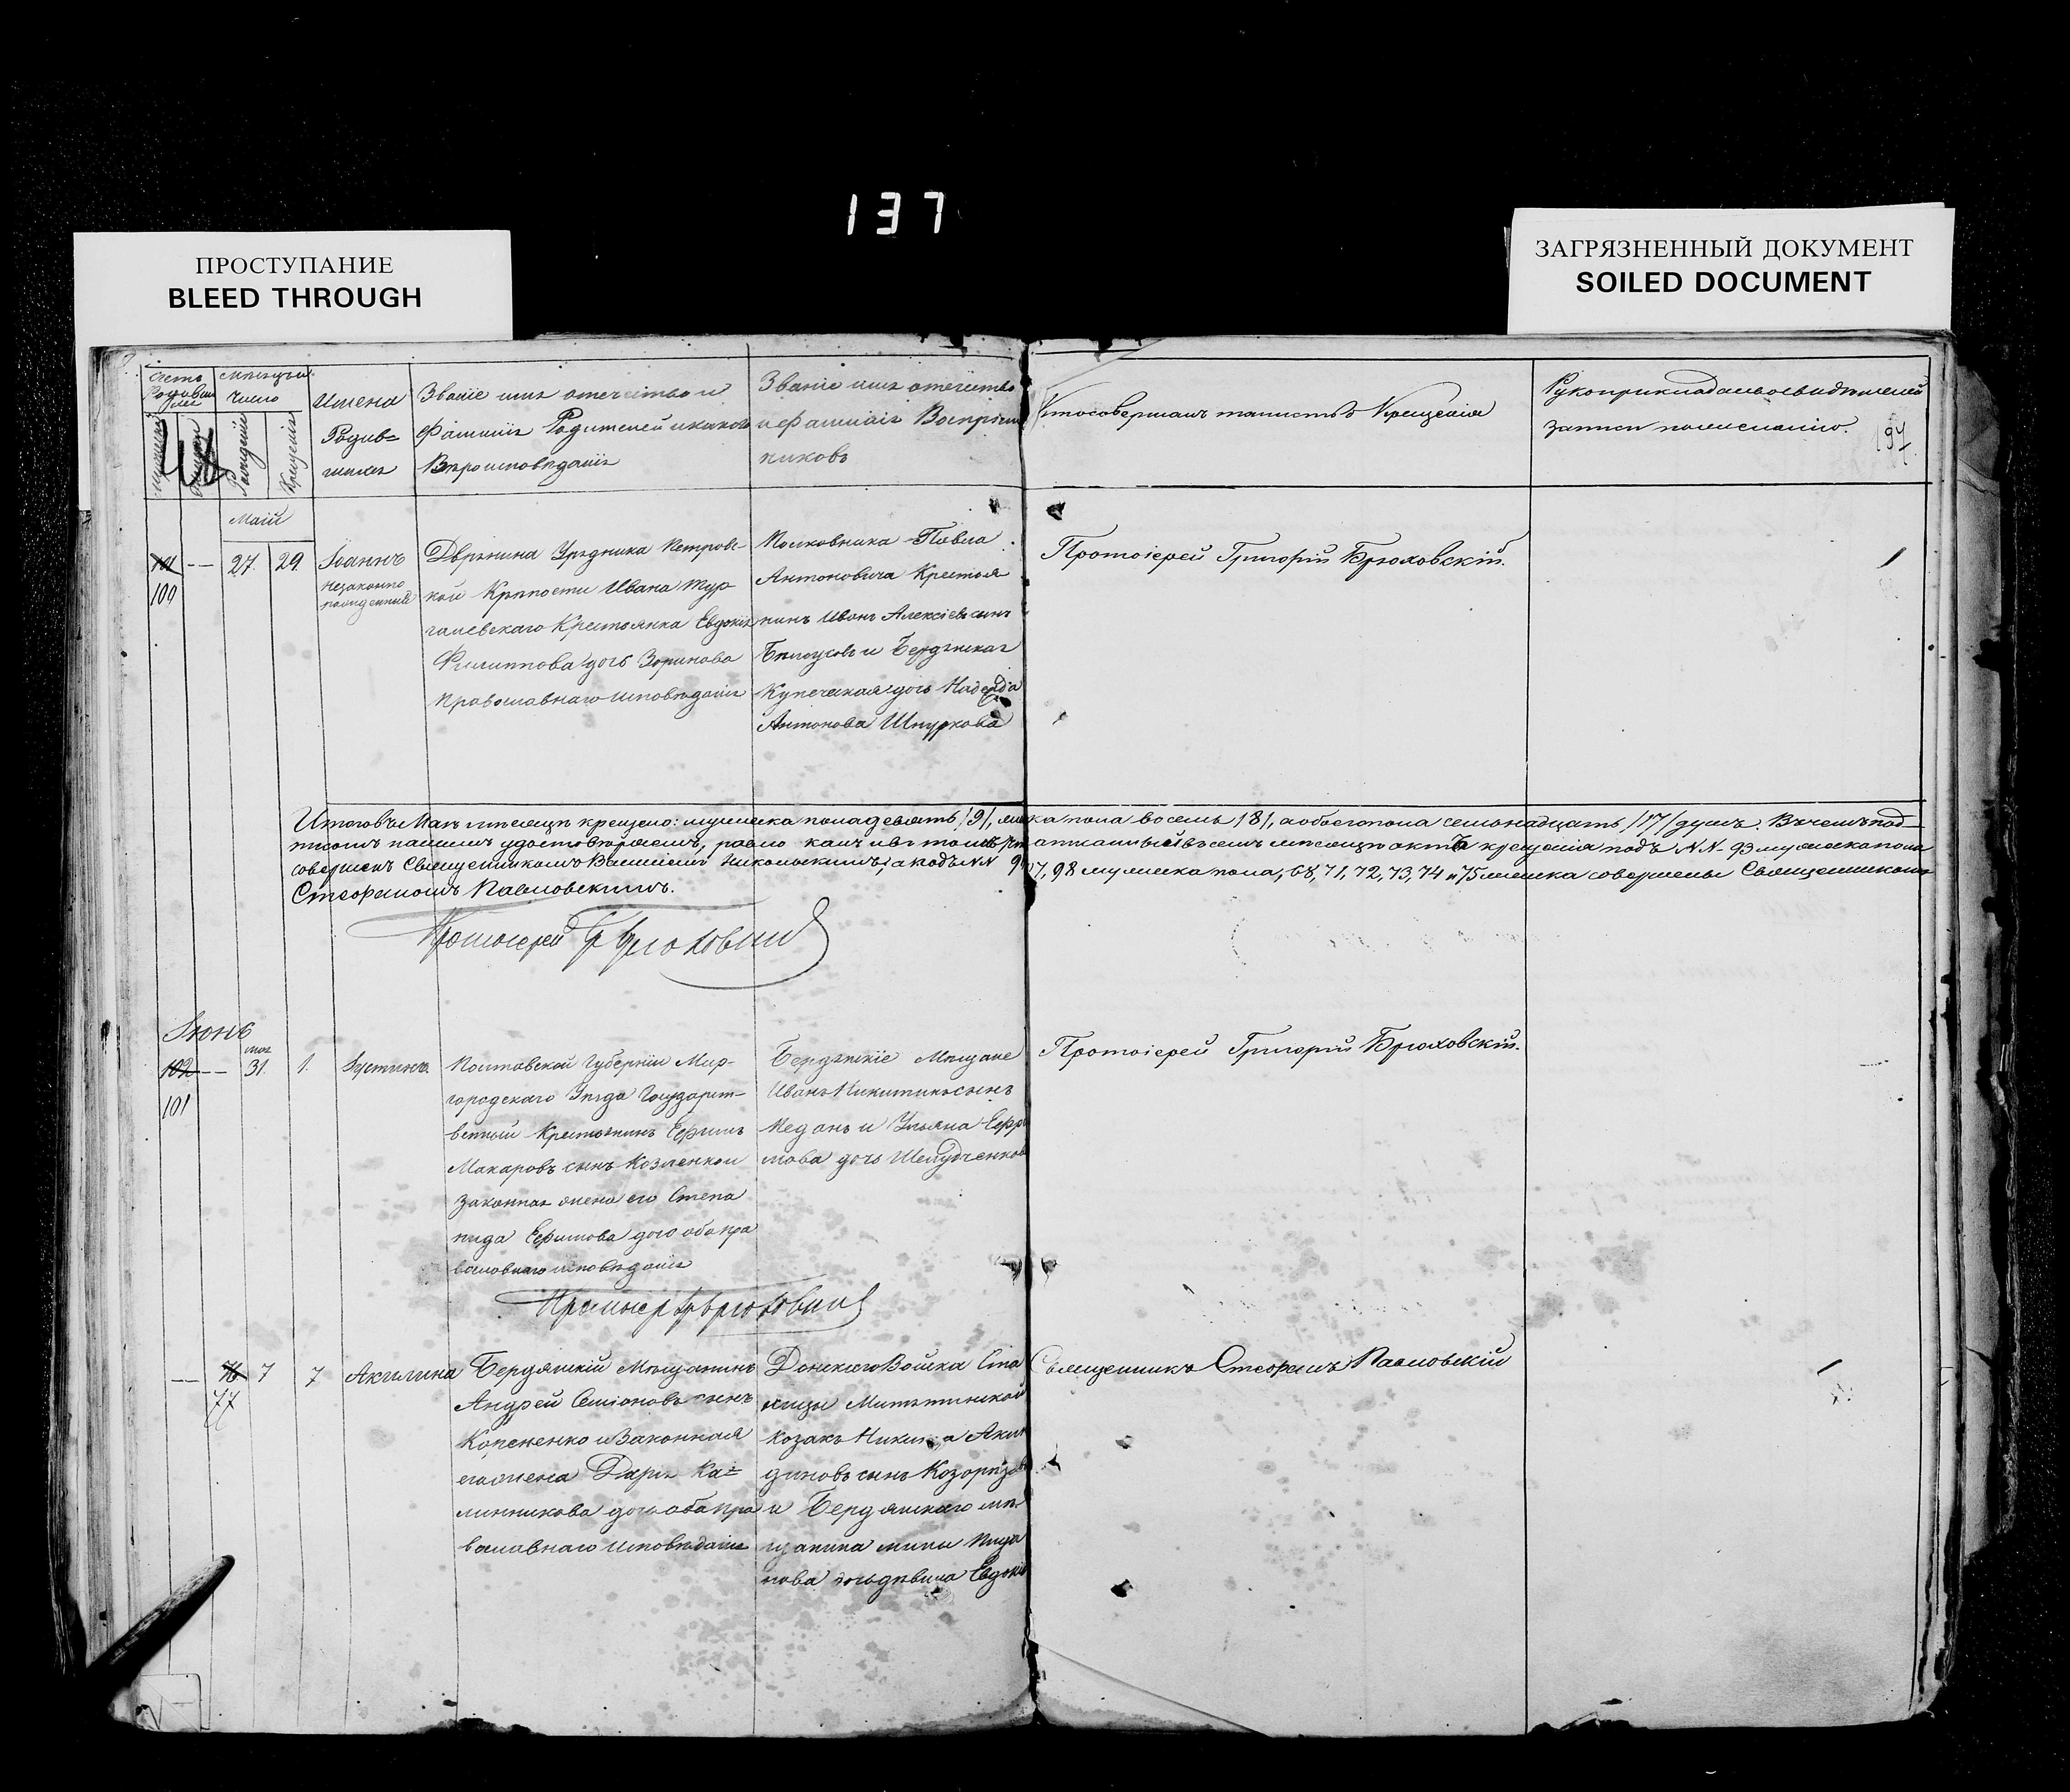 137
ПРОСТУПАНИЕ
BLEED THROUGH
ЗАГРЯЗНЕННЫЙ ДОКУМЕНТ
SOILED DOCUMENT
Имена
Родив=
шихся
Званіе имя отечество и
Фамилія Родителей и какого
Вѣроисповѣданія
Званіе имя отечество
и Фамилія Воспріем
никовъ
Кто совершалъ таинство Крещенія
Рукоприкладство свидѣтелей
записи по желанію.
Рожденія
Крещенія
Маій
101 — 27. 29.
100
Іоаннъ
незаконно
рожденный
Дворянина Урядника Петровс-
кой Крѣпости Ивана
Крестьянка Евдокія
Филиппова дочь Зоринова
православнаго исповѣданія
Полковника Павла
Антоновича Крестья
нинъ Иванъ Алексіевъ сынъ
и Бердянская
Купеческая дочь Надежда
Антонова Шнуркова
Протоіерей Григорій Брюховскій.
Итого въ Маіѣ мѣсяцѣ крещено: мужеска пола девять /9/, женска пола восемь /8/, а обоего пола семьнадцать /17/ душъ. Въ чемъ под-
писомъ нашимъ удостовѣряемъ, равно какъ и въ томъ что записанный въ семъ мѣсяцѣ актъ крещенія подъ N.N. 93 мужеска пола
совершенъ Священникомъ Никольскимъ, а подъ NN 97, 98 мужеска пола, 68, 71, 72, 73, 74 и 75 женска совершены Священникомъ
Стефаномъ Павловскимъ.
Протоіерей Гр Брюховскій
Іюнь
102 — мая 31. 1.
101
Іустинъ.
Полтавской Губерніи Мир-
городскаго Уѣзда Государст-
венный Крестьянинъ Ефимъ
Макаровъ сынъ Козленкои
Законная жена его Степа
нида Ефимова дочь оба пра
вославнаго исповѣданія
Бердянскіе Мѣщане
Иванъ Никитинъ сынъ
Медань и Ульяна Ефи
мова дочь
Протоіерей Григорій Брюховскій.
Протоіер Гр Брюховскій
— 76 7 7
77
Акилина
Бердянскій Мѣщанинъ
Андрей Симіоновъ сынъ
Копененко и Законная
его жена Дарія Ка=
линникова дочь оба пра
вославнаго исповѣданія
Донскаго Войска Ста
ницы Митякинской
Козакъ Никита Акин
диновъ сынъ
и Бердянскаго мѣ
щанина
нова дочь дѣвица Евдокія
Священникъ Стефанъ Павловскій